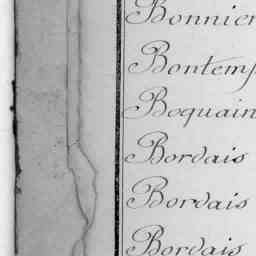 Bonnier
Bontemp
Boquain
Bordais
Bordais
Bordais